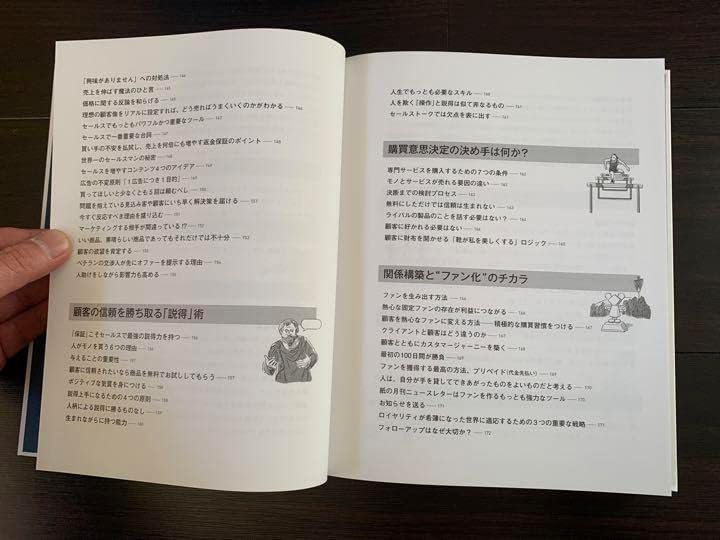 「興味がありません」への対処法 — 144
売上を伸ばす魔法のひと言 — 145
価格に関する反論を和らげる — 145
理想の顧客像をリアルに設定すれば、どう売ればうまくいくのかがわかる — 146
セールスでもっともパワフルかつ重要なツール
セールスで一番重要な台詞
買い手の不安を払拭し、売上を何倍にも増やす返金保証のポイント — 148
世界一のセールスマンの秘密
セールスを増やすコンテンツ4つのアイデア
広告の不変原則「1広告につき1目的」
買ってほしいと少なくとも5回は頼むべし — 150
問題を抱えている見込み客や顧客にいち早く解決策を届ける — 151
今すぐ反応すべき理由を盛り込む
マーケティングする相手が間違っている!?
いい商品、素晴らしい商品であってもそれだけでは不十分 — 153
顧客の欲望を肯定する
ベテランの交渉人が先にオファーを提示する理由 — 154
人助けをしながら影響力も高める — 155
顧客の信頼を勝ち取る「説得」術
「保証」こそセールスで最強の説得力を持つ — 156
人がモノを買う6つの理由 — 156
与えることの重要性 — 157
顧客に信頼されたいなら商品を無料でお試ししてもらう — 157
ポジティブな気質を身につける — 158
説得上手になるための4つの原則 — 158
人柄による説得に勝るものなし — 159
生まれながらに持つ能力 — 160
人生でもっとも必要なスキル — 160
人を欺く「操作」と説得は似て非なるもの — 161
セールストークでは欠点を表に出す — 161
購買意思決定の決め手は何か?
専門サービスを購入するための7つの条件 — 162
モノとサービスが売れる要因の違い — 162
決断までの検討プロセス — 163
無料にしただけでは信頼は生まれない
ライバルの製品のことを話す必要はない? — 164
顧客に好かれる必要はない — 164
顧客に財布を開かせる「靴が私を美しくする」ロジック — 165
関係構築と“ファン化”のチカラ
ファンを生み出す方法 — 166
熱心な固定ファンの存在が利益につながる — 166
顧客を熱心なファンに変える方法——積極的な購買習慣をつける — 167
クライアントと顧客はどう違うのか
顧客とともにカスタマージャーニーを築く
最初の100日間が勝負 — 169
ファンを獲得する最高の方法、プリペイド(代金先払い) — 169
人は、自分が手を貸してできあがったものをよいものだと考える — 170
紙の月刊ニュースレターはファンを作るもっとも強力なツール — 170
お知らせを送る — 171
ロイヤリティが希薄になった世界に適応するための3つの重要な戦略 — 171
フォローアップはなぜ大切か? — 172